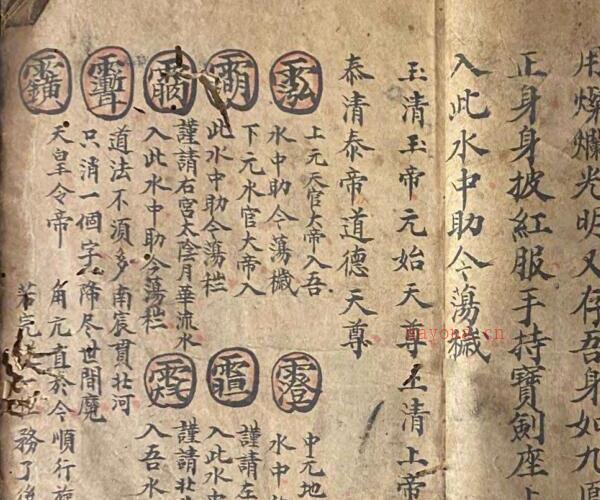 用燦爛光明又存吾身如九
正身身披紅服手持寶劍座
入此水中助令蕩穢
玉清玉帝元始天尊 清上帝
泰清泰帝道德天尊
上元天官大帝入吾
水中助令蕩穢
下元水官大帝入
此水中助令蕩栏
謹請右宮太陰月華流水
入此水中助令蕩栏
中元地
水中
謹請左
入此水中
謹請北
入吾水
道法不須多南宸貫北河
只消一個字降尽世間魔
天皇令帝 角亢直於今順行
若完 務了後
nayona.cn